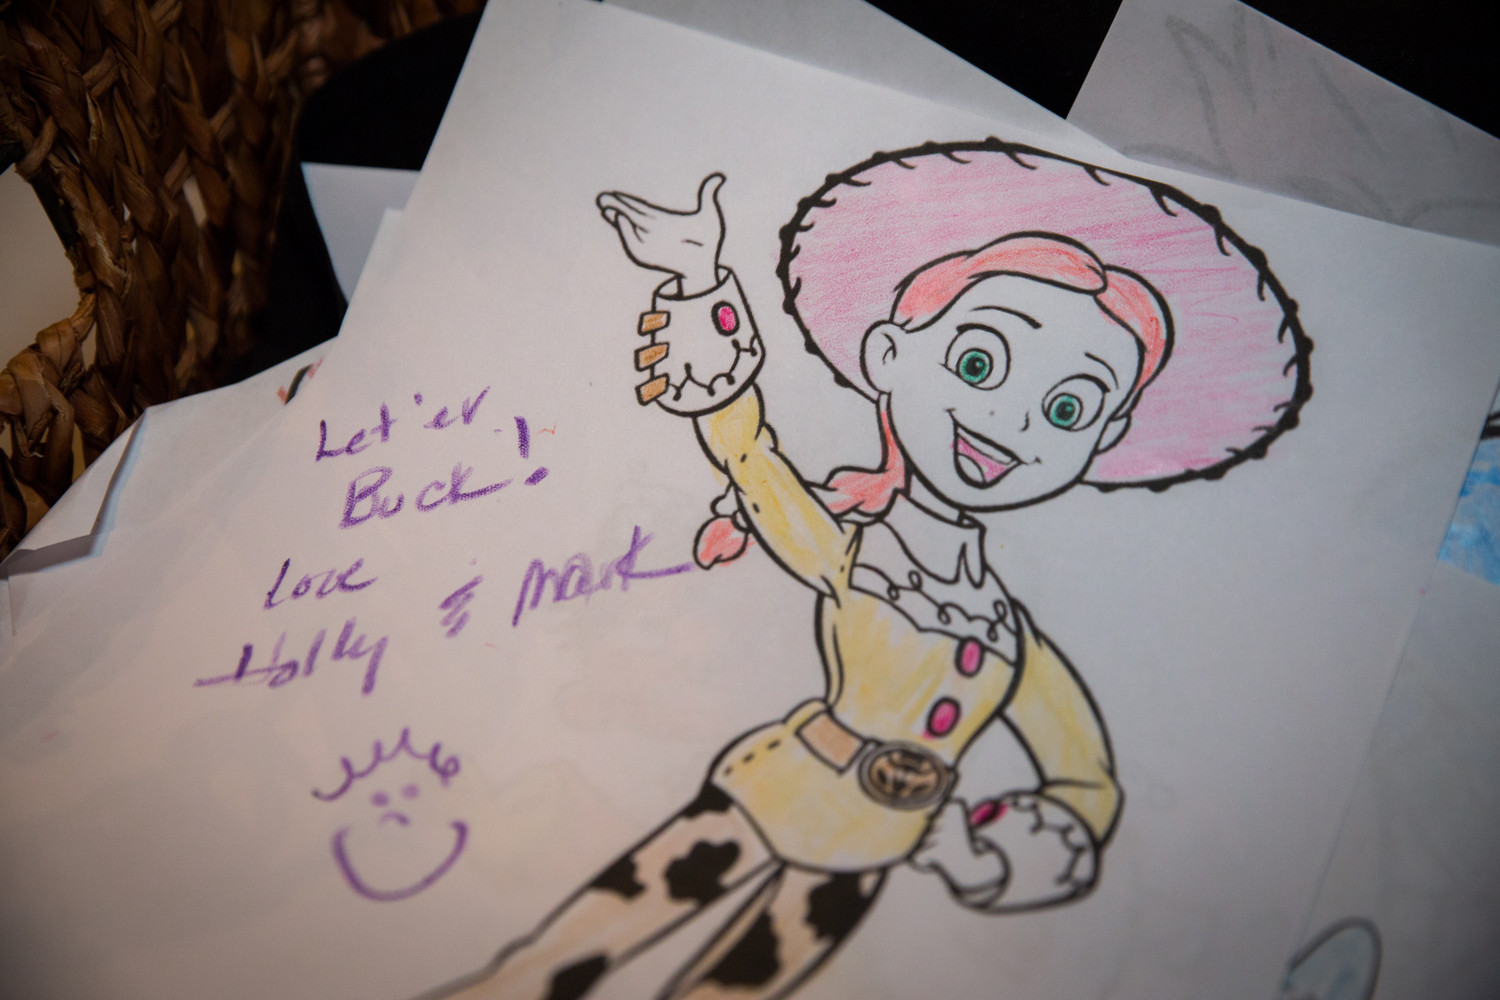 Let 'er
Buck!
Love
Holly & Mark